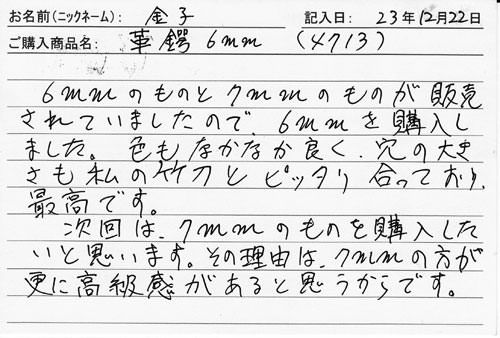 お名前(ニックネーム): 金子 記入日: 23年12月22日
ご購入商品名: 革鍔 6mm (4713)
6mmのものと7mmのものが販売
されていましたので、6mmを購入し
ました。色もなかなか良く、穴の大き
さも私の竹刀とピッタリ合っており、
最高です。
次回は、7mmのものを購入した
いと思います。その理由は、7mmの方が
更に高級感があると思うからです。